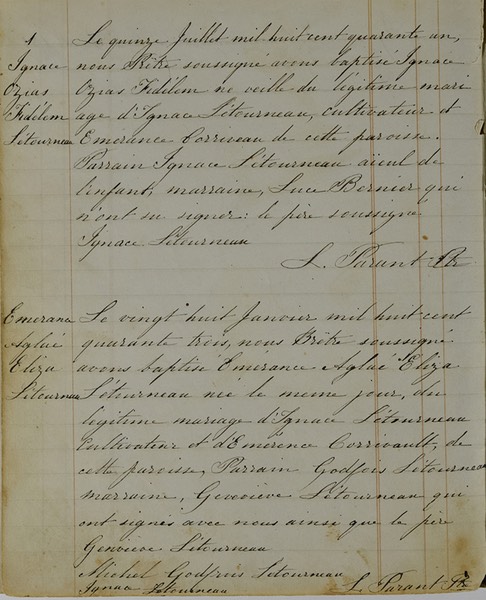 1
Ignace
Ozias
Fidélem
Létourneau
Le quinze Juillet mil huit cent quarante un,
nous Prêtre soussigné avons baptisé Ignace
Ozias Fidélem né veille du légitime mari
age d'Ignace Létourneau, cultivateur et
Emérance Corriveau de cette paroisse.
Parrain Ignace Létourneau aieul de
l'enfant, marraine, Luce Bernier qui
n'ont su signer: le père soussigné
Ignace Létourneau
L. Parant Ptr
Emerance
Aglaé
Eliza
Létourneau
Le vingt huit Janvier mil huit cent
quarante trois, nous Prêtre soussigné
avons baptisé Emérance Aglaé Eliza
Létourneau née le meme jour, du
légitime mariage d'Ignace Létourneau
Cultivateur et d'Emérence Corrivault, de
cette paroisse, Parrain Godfois Létourneau
marraine, Geneviève Létourneau qui
ont signés avec nous ainsi que le père
Geneviève Létourneau
Michel Godfrois Létourneau
Ignace Létourneau
L. Parant Ptr